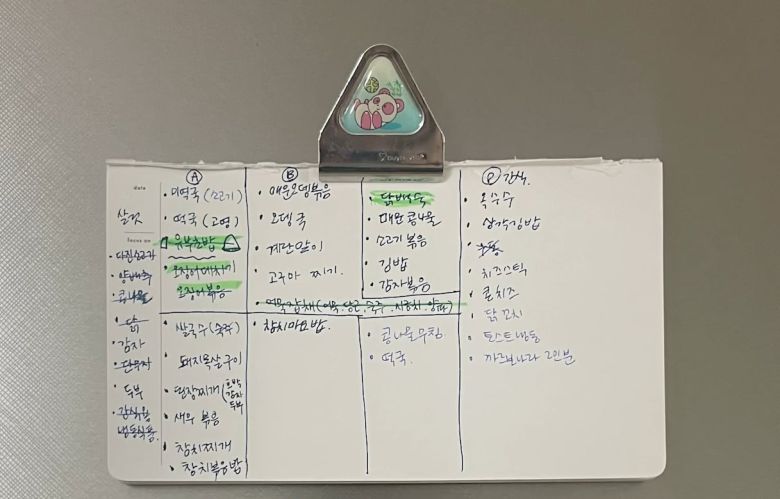 date
살것
focus on
다진소고기
양배추
콩나물
닭
감자
단무지
두부
간식용
냉동식품.
Ⓐ
미역국 (소고기)
떡국 (고명)
유부초밥
오징어데치기
오징어볶음
쌀국수 (숙주)
돼지목살구이
된장찌개 (호박
감자
두부
새우 볶음
참치찌개
참치볶음밥
Ⓑ
매운오뎅볶음
오뎅국
계란말이
고구마 찌기.
어묵잡채 (어묵.당근.숙주.시금치.양파)
참치마요밥.
닭백숙
매운콩나물
소고기볶음
김밥
감자볶음
콩나물무침
떡국.
간식.
옥수수
삼각김밥
우동
치즈스틱
콘치즈
닭꼬치
토스트냉동
까르보나라 2인분